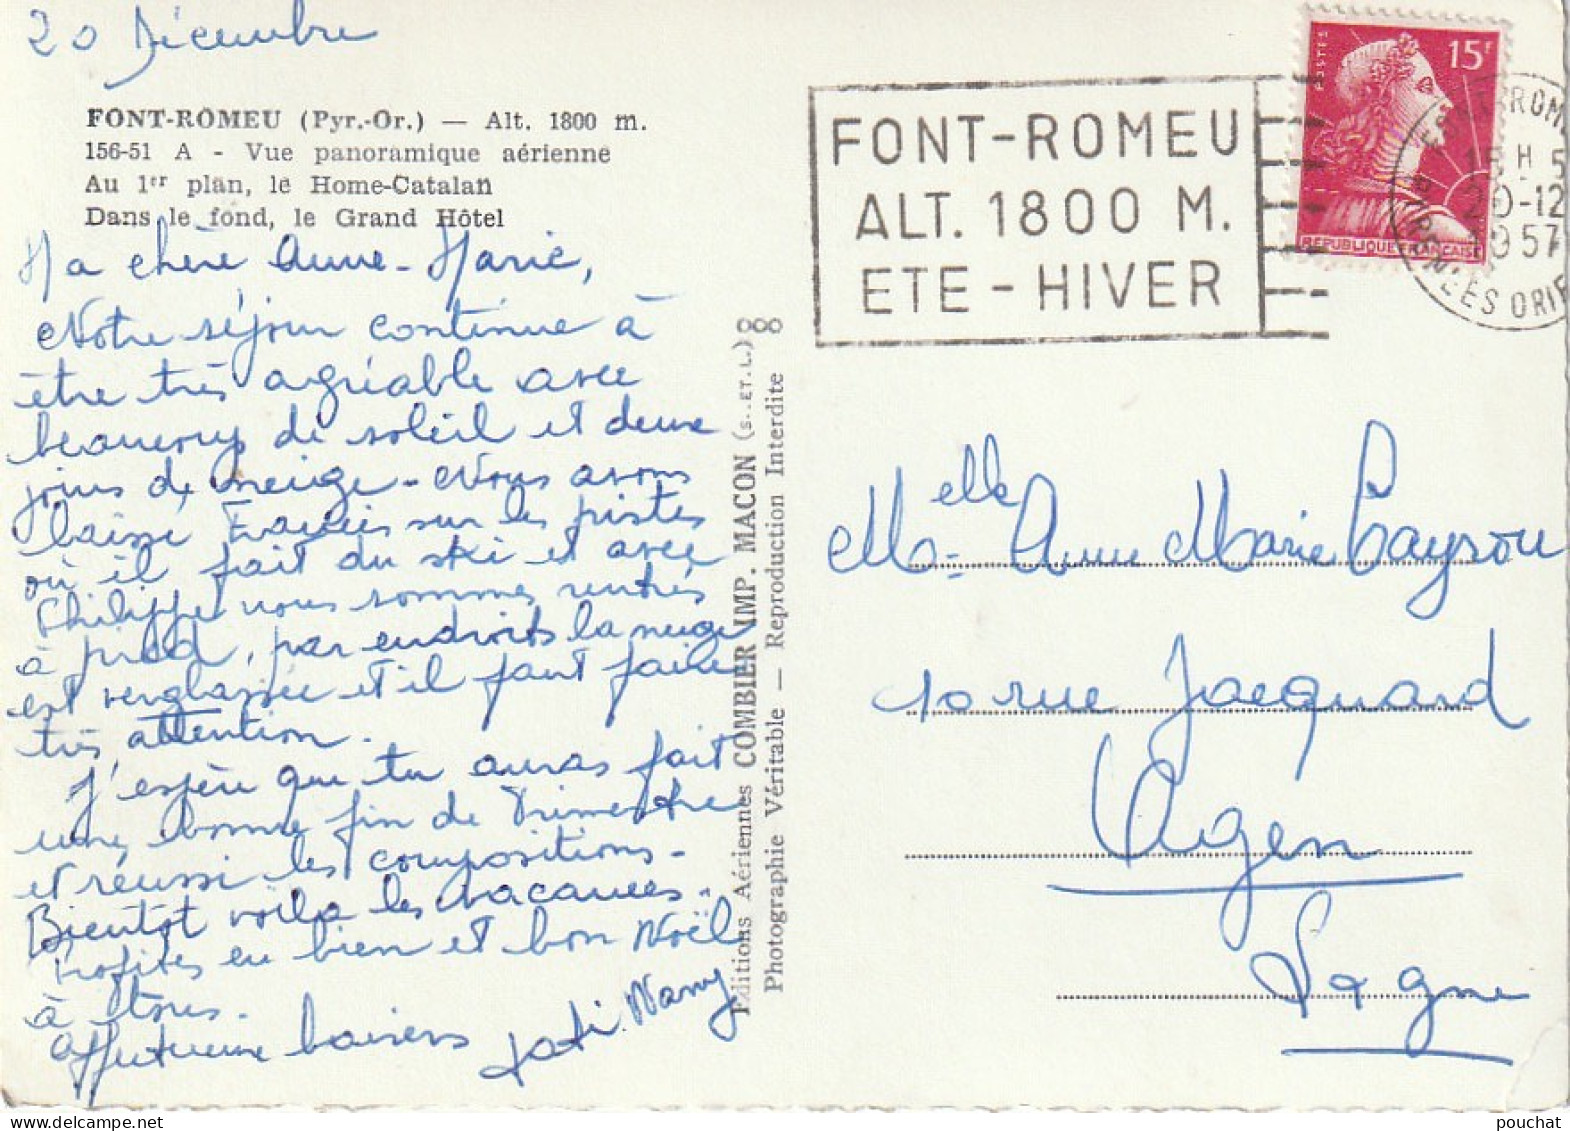 20 Décembre
FONT-ROMEU (Pyr.-Or.) — Alt. 1800 m.
156-51 A - Vue panoramique aérienne
Au 1er plan, le Home-Catalan
Dans le fond, le Grand Hôtel
Ma chère Anne-Marie,
Notre séjour continue à
être très agréable avec
beaucoup de soleil et deux
jours de neige - Nous avons
laissé sur les pistes
où il fait du ski et avec
Philippe nous sommes rentrés
à pied, par endroits la neige
est verglassée et il faut faire
très attention.
J'espère que tu auras fait
une bonne fin de Trimestre
et réussi les compositions -
Bientôt voila les vacances -
profites en bien et bon Noël
à tous.
Affectueux baisers
Nany
Editions Aériennes COMBIER IMP. MACON (S.-ET-L.)
Photographie Véritable — Reproduction Interdite
FONT-ROMEU
ALT. 1800 M.
ETE - HIVER
POSTES
15F
REPUBLIQUE FRANÇAISE
20-12
1957
PYRENEES ORIE
Melle Anne Marie Cayrou
10 rue Jacquard
Agen
pouchat